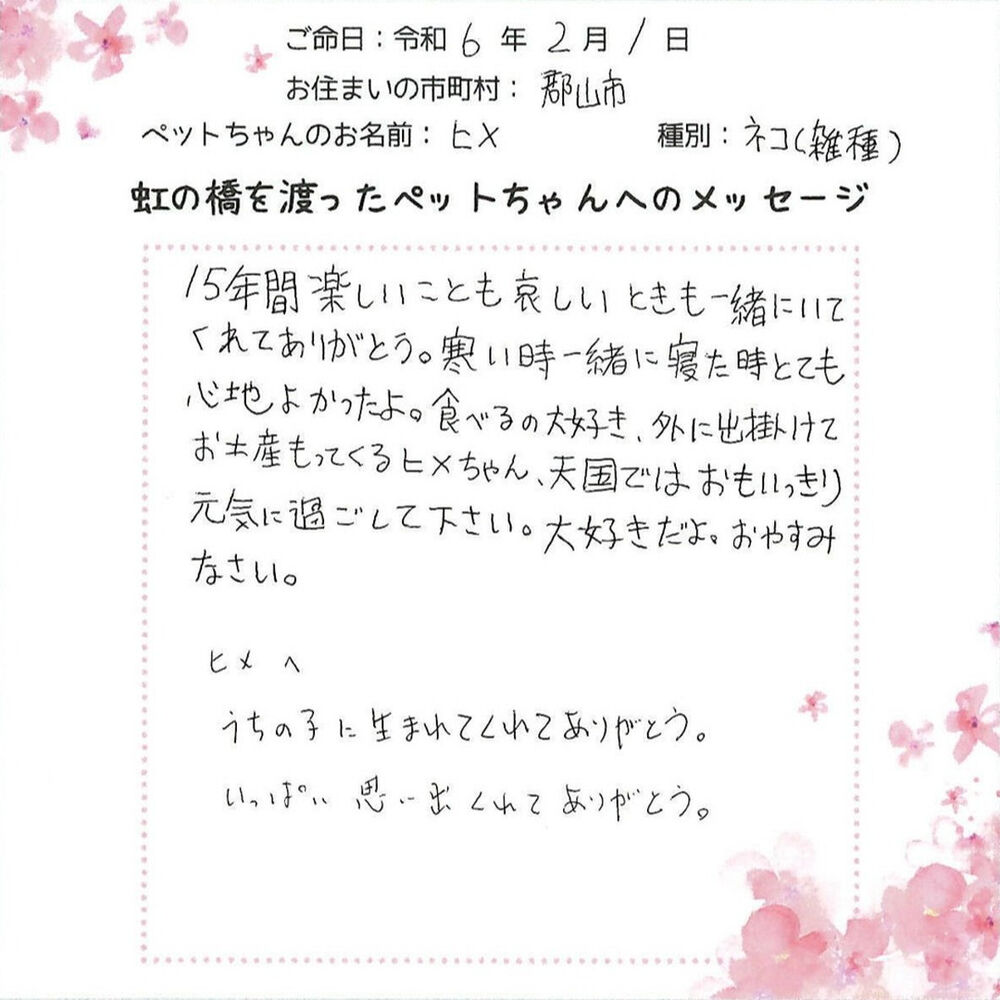 ご命日：令和 6 年 2 月 1 日
お住まいの市町村： 郡山市
ペットちゃんのお名前：ヒメ 種別：ネコ(雑種)
虹の橋を渡ったペットちゃんへのメッセージ
15年間楽しいことも哀しいときも一緒にいて
くれてありがとう。寒い時一緒に寝た時とても
心地よかったよ。食べるの大好き、外に出掛けて
お土産もってくるヒメちゃん、天国ではおもいっきり
元気に過ごして下さい。大好きだよ。おやすみ
なさい。
ヒメへ
うちの子に生まれてくれてありがとう。
いっぱい思い出くれてありがとう。